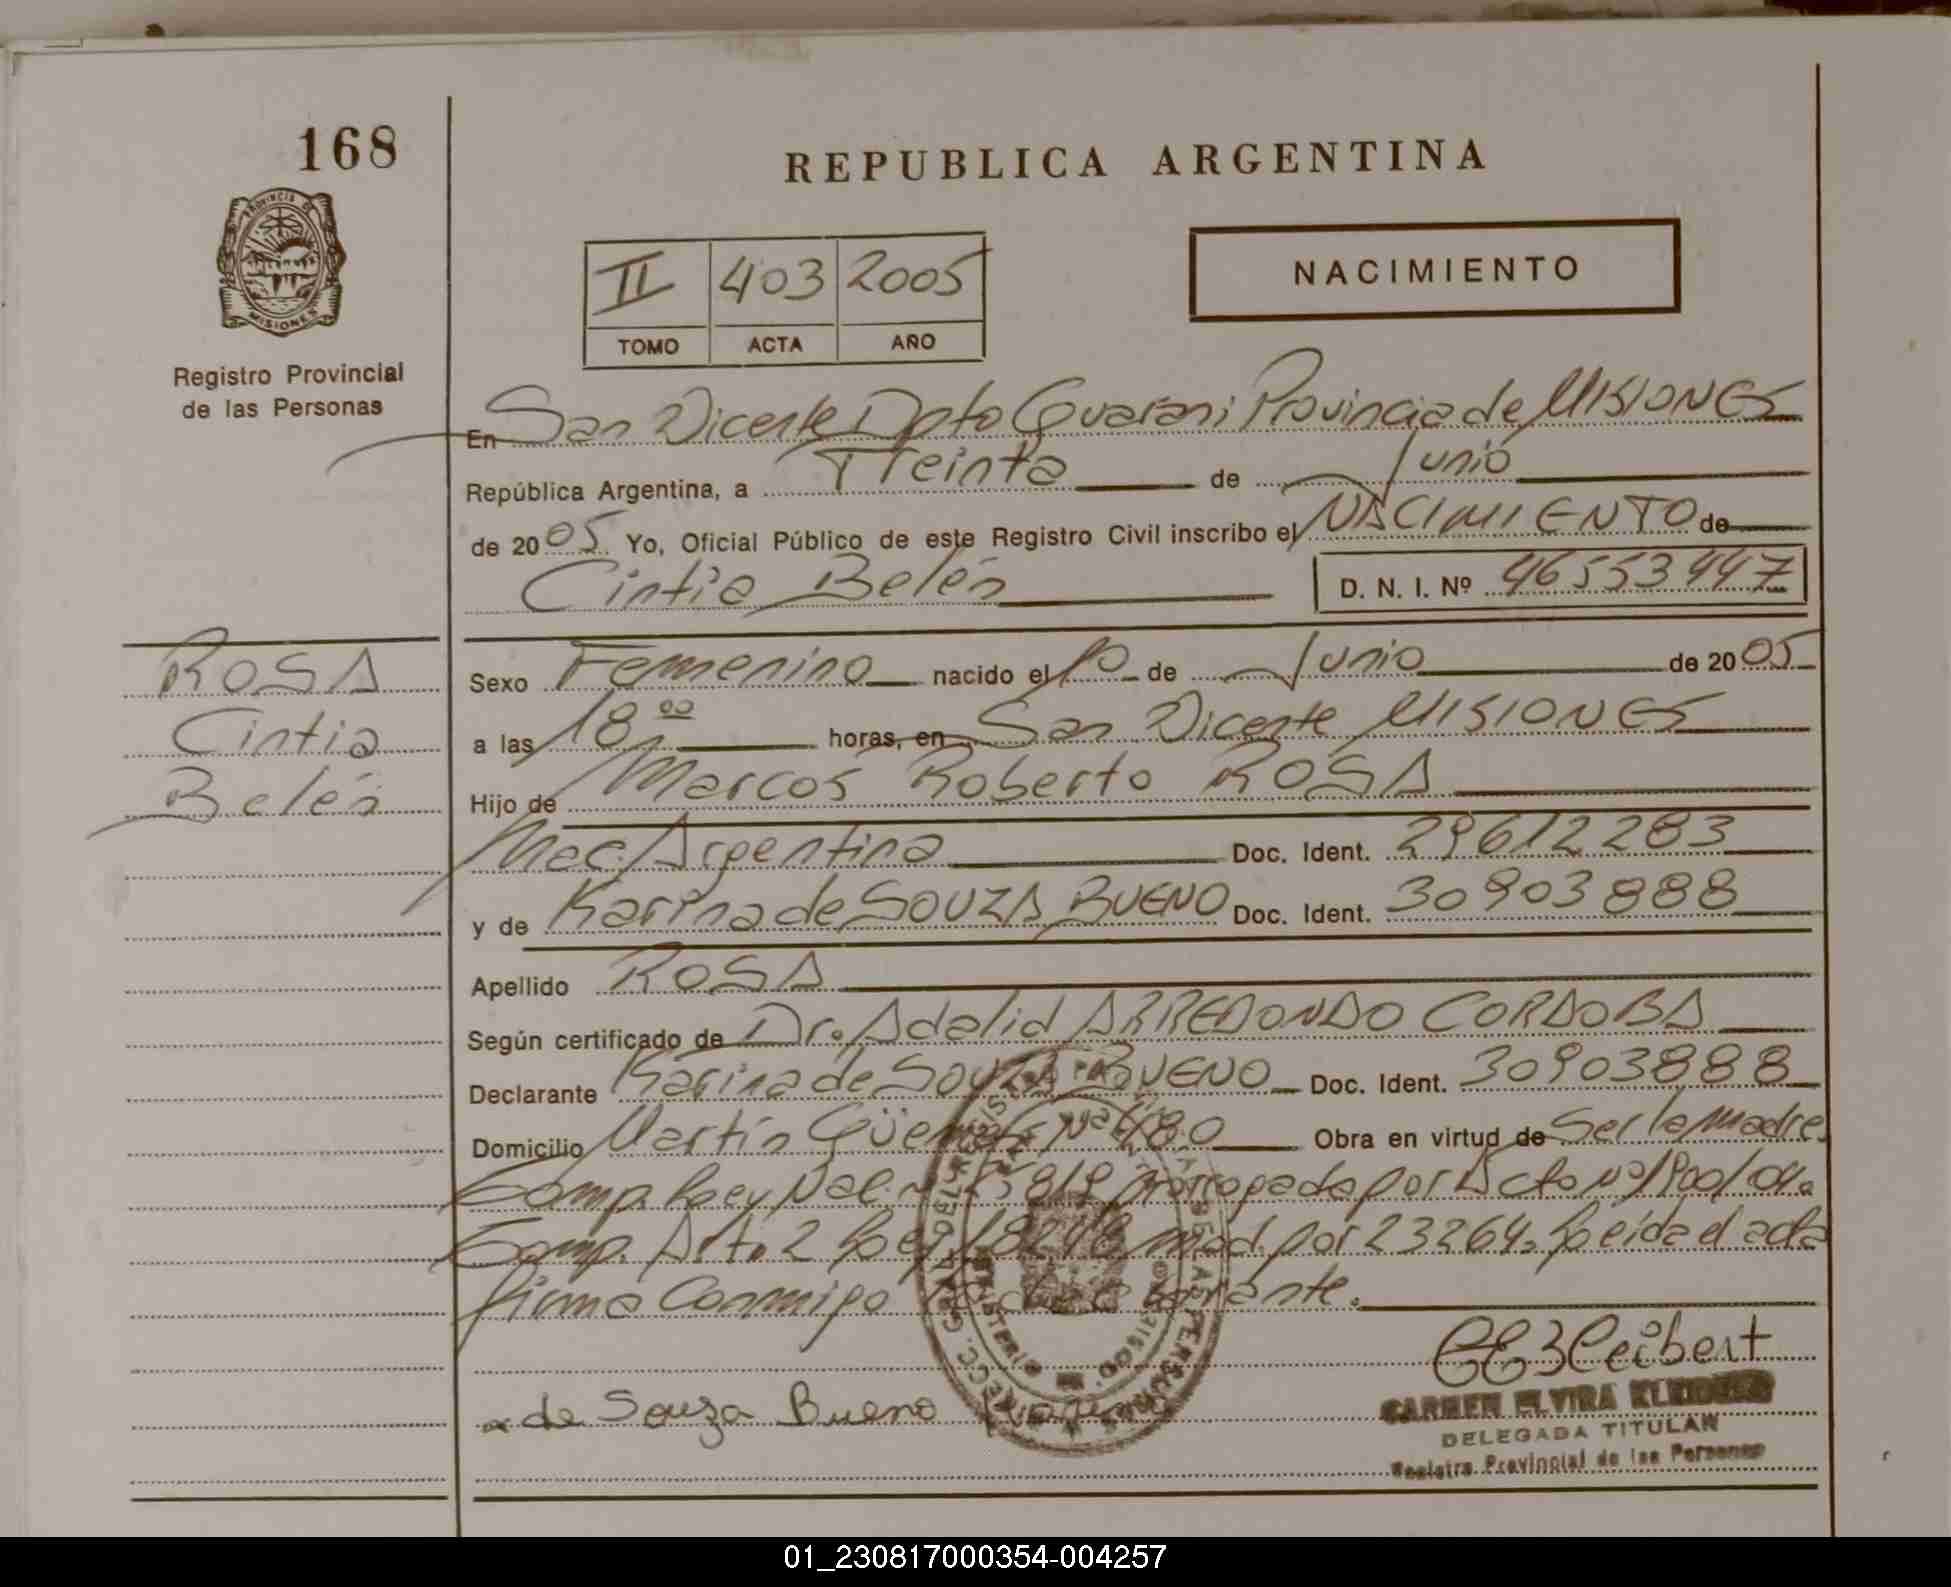 168
REPUBLICA ARGENTINA
PROVINCIA DE
MISIONES
Registro Provincial
de las Personas
II 403 2005
TOMO ACTA AÑO
NACIMIENTO
En San Vicente Dpto Guarani Provincia de MISIONES
República Argentina, a Treinta de Junio
de 2005 Yo, Oficial Público de este Registro Civil inscribo el NACIMIENTO de
Cintia Belén D. N. I. Nº 46553447
ROSA
Cintia
Belén
Sexo Femenino nacido el 10 de Junio de 2005
a las 18,00 horas, en San Vicente MISIONES
Hijo de Marcos Roberto ROSA
Nac. Argentina Doc. Ident. 29612283
y de Karina de SOUZA BUENO Doc. Ident. 30903888
Apellido ROSA
Según certificado de Dr. Adalid ARREDONDO CORDOBA
Declarante Karina de SOUZA BUENO Doc. Ident. 30903888
Domicilio Martín Güemes Nº 480 Obra en virtud de Ser la madre
Comp. Ley Nac. prorrogada por
Comp. Art. 2 Ley 18248 mod. por 23264. Leída el acta
firma conmigo
de Souza Bueno
CARMEN ELVIRA
DELEGADA TITULAR
Registro Provincial de las Personas
01_230817000354-004257